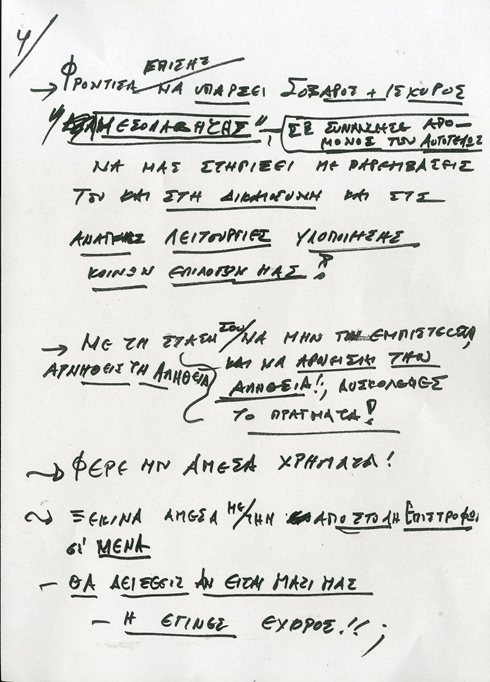 4/
→ ΦΡΟΝΤΙΣΑ ΕΠΙΣΗΣ ΝΑ ΥΠΑΡΞΕΙ ΣΟΒΑΡΟΣ + ΙΣΧΥΡΟΣ
"ΜΕΣΟΛΑΒΗΤΗΣ" – ΣΕ ΣΥΝΑΝΤΗΣΕ
ΜΟΝΟΣ ΤΟΥ ΑΥΤΟΤΕΛΩΣ
ΝΑ ΜΑΣ ΣΤΗΡΙΞΕΙ ΜΕ ΠΑΡΕΜΒΑΣΕΙΣ
ΤΟΥ ΚΑΙ ΣΤΗ ΔΙΚΑΙΟΣΥΝΗ ΚΑΙ ΣΤΙΣ
ΛΕΙΤΟΥΡΓΙΕΣ ΥΛΟΠΟΙΗΣΗΣ
ΚΟΙΝΩΝ ΕΠΙΛΟΓΩΝ ΜΑΣ!
→ ΜΕ ΤΗ ΣΤΑΣΗ ΣΟΥ/ΝΑ ΜΗΝ ΤΟΝ ΕΜΠΙΣΤΕΥΤΕΙΣ,
ΑΡΝΗΘΕΙΣ ΤΗ ΑΛΗΘΕΙΑ ΚΑΙ ΝΑ ΑΡΝΕΙΣΑΙ ΤΗΝ
ΑΛΗΘΕΙΑ!, ΔΥΣΚΟΛΕΨΕΣ
ΤΟ ΠΡΑΓΜΑΤΑ!
→ ΦΕΡΕ ΜΗ ΑΜΕΣΑ ΧΡΗΜΑΤΑ!
→ ΞΕΚΙΝΑ ΑΜΕΣΑ ΜΕ/ΜΗΝ ΑΠΟΣΤΟΛΗ ΕΠΙΣΤΡΟΦΩΝ
Σ' ΜΕΝΑ
– ΘΑ ΔΕΙΞΕΙΣ ΑΝ ΕΙΣΑΙ ΜΑΖΙ ΜΑΣ
– Η ΕΓΙΝΕΣ ΕΧΘΡΟΣ!!;